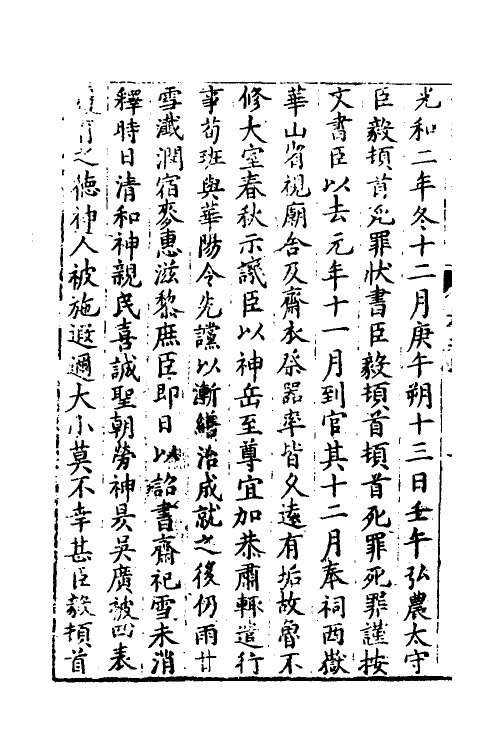 光和二年冬十二月庚午朔十三日壬午弘農太守
臣毅頓首死罪狀書臣毅頓首頓首死罪死罪謹按
文書臣以去元年十一月到官其十二月奉祠西嶽
華山省視廟舍及齋衣祭器率皆久遠有垢故魯不
修大室春秋示譏臣以神岳至尊宜加恭肅輒遣行
事荀班與華陽令先讜以漸繕治成就之後仍雨甘
雪瀸潤宿麥惠滋黎庶臣即日以詔書齋祀雪未消
釋時日清和神親民喜誠聖朝勞神昃吳廣被凹表
之德神人被施遐邇大小莫不幸甚臣毅頓首